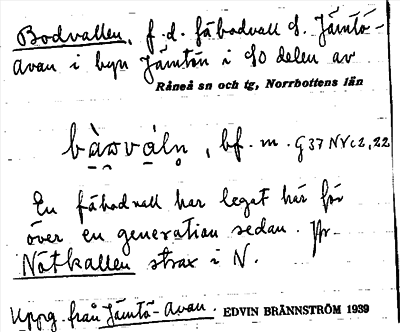 Bodvallen, f.d. fäbodvall S. Jämtö-
avan i byn Jämtön i SO delen av
Råneå sn och tg, Norrbottens län
bà̱ɷvά̱ln̥, bf. m. G37 NV c2, 22
En fäbodvall har legat här för
över en generation sedan. Jfr
Nötkallen strax i N.
Uppg. från Jämtö-avan. EDVIN BRÄNNSTRÖM 1939